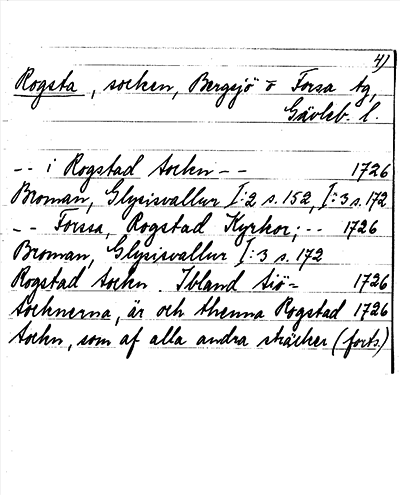 4)
Rogsta, socken, Bergsjö o Forsa tg,
Gävleb. l.
-- i Rogstad Sockn -- 1726
Broman, Glysisvallur I:2 s. 152, I:3 s. 172
-- Forssa, Rogstad Kyrkor; -- 1726
Broman, Glysisvallur I:3 s. 172
Rogstad Sockn. Ibland Siö- 1726
Socknerna, är och thenna Rogstad 1726
Sockn, som af alla andra sträcker (forts.)